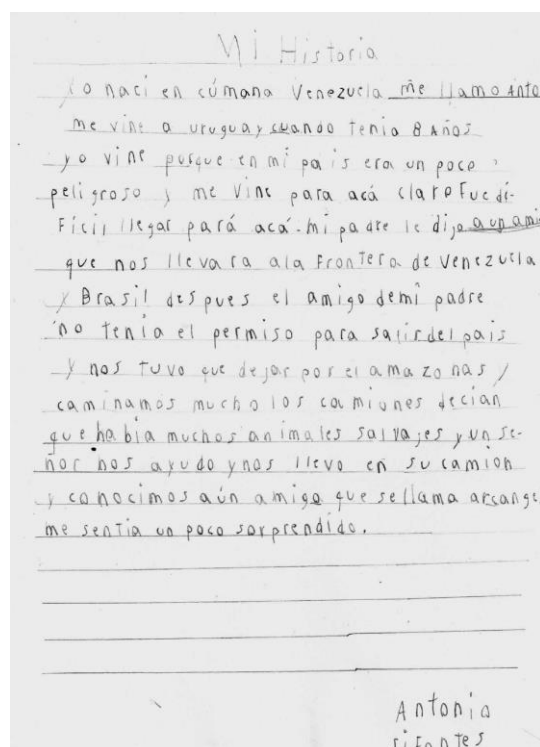 Mi Historia
Yo naci en cúmana Venezuela me llamo Anto
me vine a uruguay cuando tenia 8 Años
yo vine porque en mi pais era un poco
peligroso y me vine para acá claro Fue di-
Ficil llegar pará acá. mi padre le dijo a un ami
que nos llevara ala Frontera de Venezuela
y Brasil despues el amigo demi padre
no tenia el permiso para salir del pais
y nos tuvo que dejar por el amazonas y
caminamos mucho los camiones decian
que habia muchos animales salvajes y un se-
ñor nos ayudo y nos llevo en su camion
y conocimos aún amigo que sellama arcange
me sentia un poco sorprendido.
Antonio